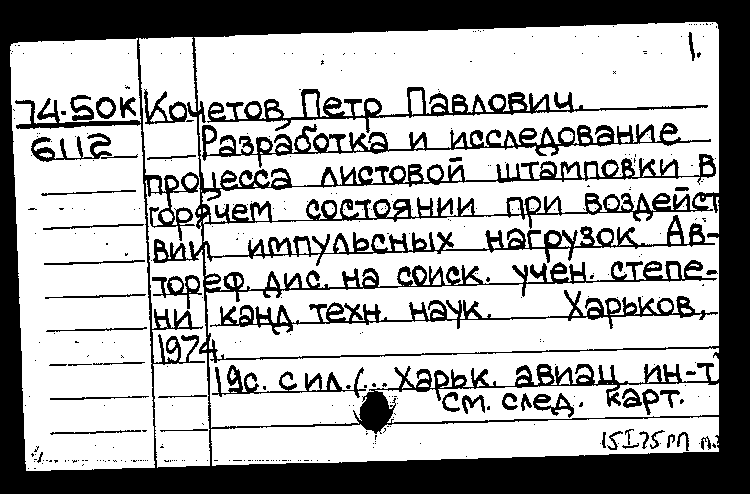 1.
74-50К Кочетов, Петр Павлович.
6112 Разработка и исследование
процесса листовой штамповки в
горячем состоянии при воздейст
вии импульсных нагрузок. Ав-
тореф. дис. на соиск. учен. степе-
ни канд. техн. наук. Харьков,
1974.
19с. с ил. (... Харьк. авиац. ин-т
см. след. карт.